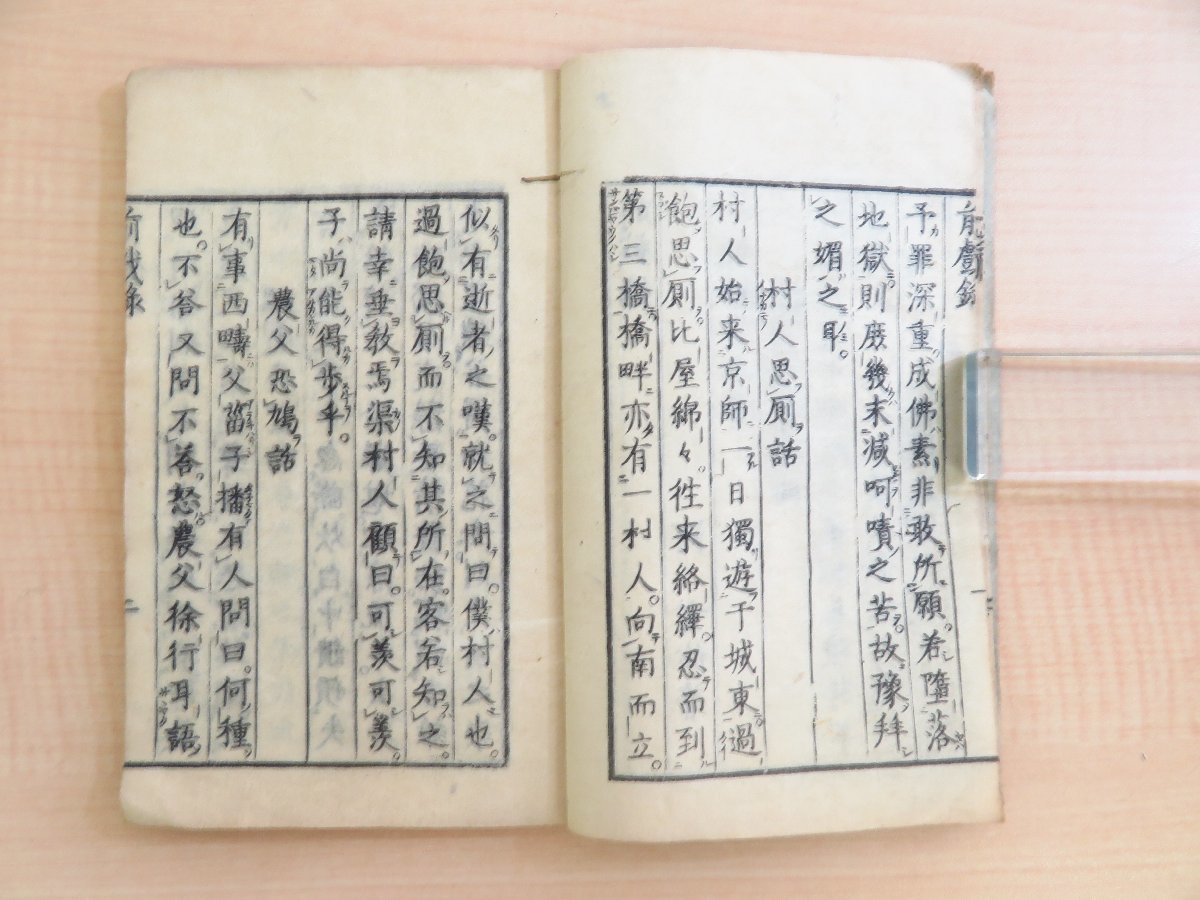 予罪深重成佛素非敢所願若墮落
地獄則庶幾末減呵嘖之苦故豫拜
之媚之耳。
村人思厠話
村人始来京師一日獨遊于城東過
飽思厠比屋綿々往来絡繹忍而到
第三橋橋畔亦有一村人。向南而立。
似有逝者之嘆。就之問曰。僕村人也。
過飽思厠而不知其所在客若知之
請幸垂教焉渠村人顧曰。可羨可羨。
子尚能得步乎。
農父恐鳩話
有事西疇父菑子播有人問曰。何種
也。不答又問不答。怒農父徐行耳語